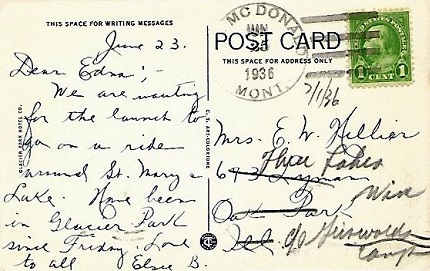 THIS SPACE FOR WRITING MESSAGES
June 23.
Dear Edna;-
We are waiting
for the launch to
go on a ride
around St. Mary's
Lake. Have been
in Glacier Park
since Friday. Love
to all Elsie B.
GLACIER PARK HOTEL CO.
C.T. ART-COLORTONE
POST CARD
THIS SPACE FOR ADDRESS ONLY
McDONALD
JUN
25
1936
MONT.
UNITED STATES POSTAGE
1 CENT 1
7/1/36
Mrs. E. W. Hillier
Three Lakes
Wis
Oak Park,
Ill c/o Griswolds
Camp